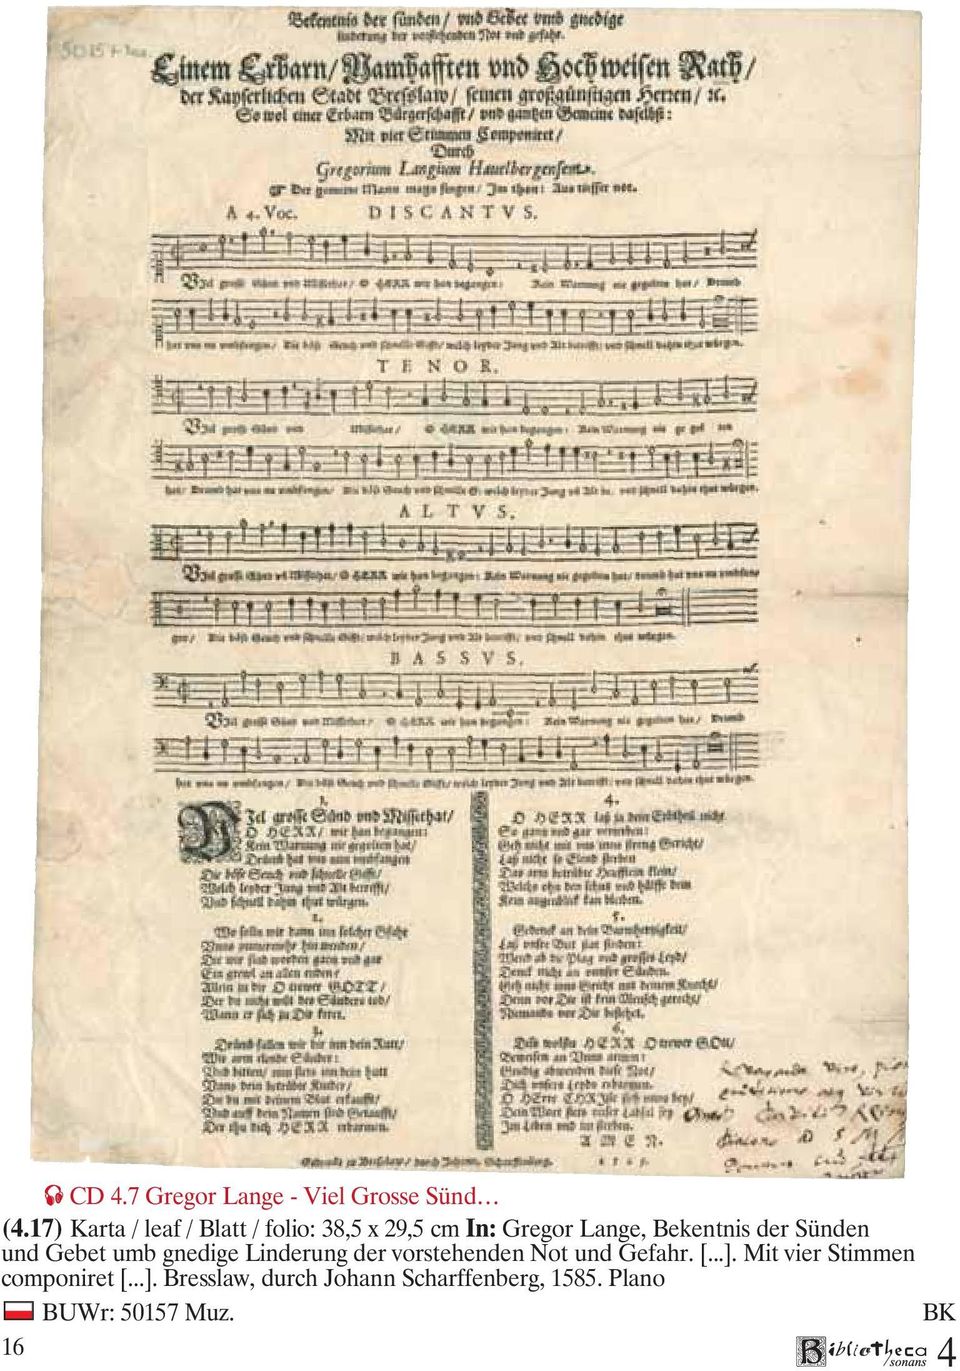 Bekentnis der sünden / vnd Gebet vmb gnedige
linderung der vorstehenden Not vnd gefahr.
Einem Erbarn / Namhafften vnd Hochweisen Rath /
der Kayserlichen Stadt Bresslaw / seinen großgünstigen Herren / ꝛc.
So wol einer Erbarn Bürgerschafft / vnd gantzen Gemeine daselbst:
Mit vier Stimmen Componiret /
Durch
Gregorium Langium Hauelbergensem.
☞ Der gemeine Mann mags singen / Im thon: Aus tieffer not.
A 4. Voc. DISCANTVS.
VJel grosse Sünd vnd Missethat / O HERR wir han begangen: Kein Warnung nie gegolten hat / Drumb
hat vns nu vmbfangen / Die böse Seuch vnd schnelle Gifft / welch leyder Jung vnd Alt betrifft: vnd schnell dahin thut würgen.
TENOR.
VJel grosse Sünd vnd Missethat / O HERR wir han begangen: Kein Warnung nie ge gol ten
hat / Drumb hat vns nu vmbfangen / Die böse Seuch vnd schnelle welch leyder Jung vnd Alt vnd schnell dahin thut würgen.
ALTVS.
VJel grosse Missethat / O HERR wir han begangen: Kein Warnung nie gegolten hat / drumb hat vns nu vmbfan
gen / Die böse Seuch vnd schnelle Gifft / welch leyder Jung vnd Alt betrifft / vnd schnell dahin thut würgen.
BASSVS.
VJel grosse Sünd vnd Missethat / O HERR wir han begangen: Kein Warnung nie gegolten hat / Drumb
hat vns nu vmbfangen / Die böse Seuch vnd schnelle Gifft / welch leyder Jung vnd Alt betrifft: vnd schnell dahin thut würgen.
1.
VJel grosse Sünd vnd Missethat /
O HERR / wir han begangen:
Kein Warnung nie gegolten hat /
Drümb hat vns nun vmbfangen
Die böse Seuch vnd schnelle Gifft /
Welch leyder Jung vnd Alt betrifft /
Vnd schnell dahin thut würgen.
2.
Wo solln wir dann inn solcher Gfahr
Vnns ymmermehr hin wenden /
Die wir sind worden gantz vnd gar
Ein grewl an allen enden?
Allein zu dir O trewer GOTT /
Der du nicht wilt des Sünders tod /
Wann er sich zu Dir keret.
3.
Drümb fallen wir hie inn dein Rutt /
Wir arm elende Sünder:
Vnd bitten /
Vnns dein betrübte Kinder /
Die du mit deinem Blut erkaufft /
Vnd auff dein Namen sind Getaufft /
Der thu dich HERR erbarmen.
4.
O HERR laß ja dein Erbtheil nicht
So gantz vnd gar verterben:
Geh nicht mit vns inns streng Gericht /
Laß nicht so Elend sterben
Das arm betrübte Heufflein klein /
Welchs ohn den schutz vnd hülffe dein
Kein augenblick kan bleiben.
5.
Gedenck an dein Barmhertzigkeit /
Laß vnser Bitt stat finden:
Wend ab die Plag vnd grosses Leyd /
Denck nicht an vnnser Sünden.
Geh nicht inns Gricht mit deinem Knecht /
Denn vor Dir ist kein Mensch gerecht /
Niemands vor Dir bestehet.
6.
Dass wolstu HERR O trewer GOtt /
Beweisen an Vnns armen:
Gnedig abwenden diese Not /
Dich vnsers Leyds erbarmen.
O HErr CHRiste steh vnns bey /
Dein Wort stets vnser Labsel sey
Im Leben vnd im sterben.
AMEN.
Gedruckt zu Bresslaw / durch Johann. Scharffenberg. 1585.
CD 4.7 Gregor Lange - Viel Grosse Sünd…
(4.17) Karta / leaf / Blatt / folio: 38,5 x 29,5 cm In: Gregor Lange, Bekentnis der Sünden
und Gebet umb gnedige Linderung der vorstehenden Not und Gefahr. [...]. Mit vier Stimmen
componiret [...]. Bresslaw, durch Johann Scharffenberg, 1585. Plano
BUWr: 50157 Muz. BK
16 Bibliotheca sonans 4